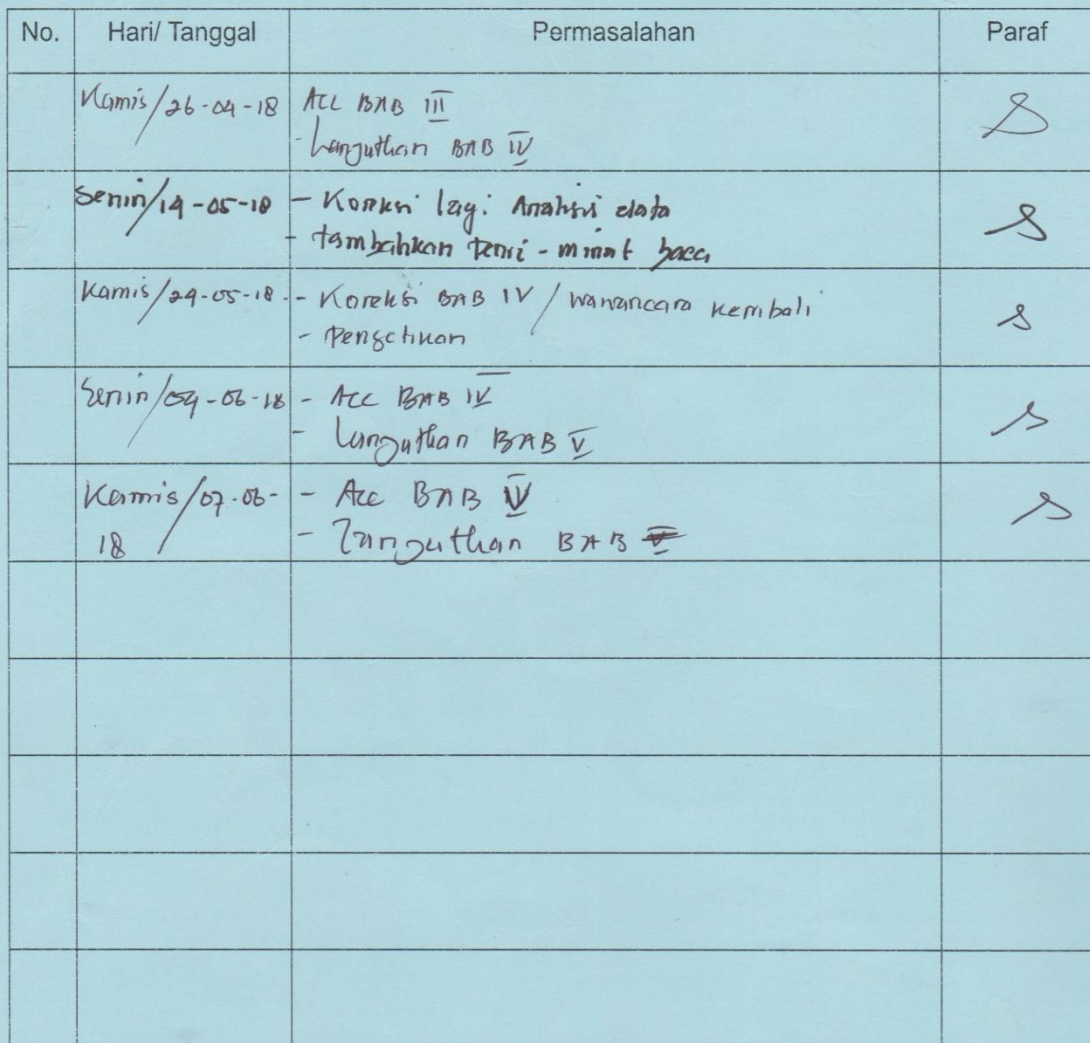 No. Hari/ Tanggal Permasalahan Paraf
Kamis/26-04-18 Acc BAB III
- Lanjutkan BAB IV
Senin/14-05-18 - Koreksi lagi Analisis data
- tambahkan teori - minat baca
Kamis/24-05-18 - Koreksi BAB IV / wawancara kembali
- Pengetikan
Senin/04-06-18 - Acc BAB IV
- Lanjutkan BAB V
Kamis/07-06- - Acc BAB V
18 - Lanjutkan BAB